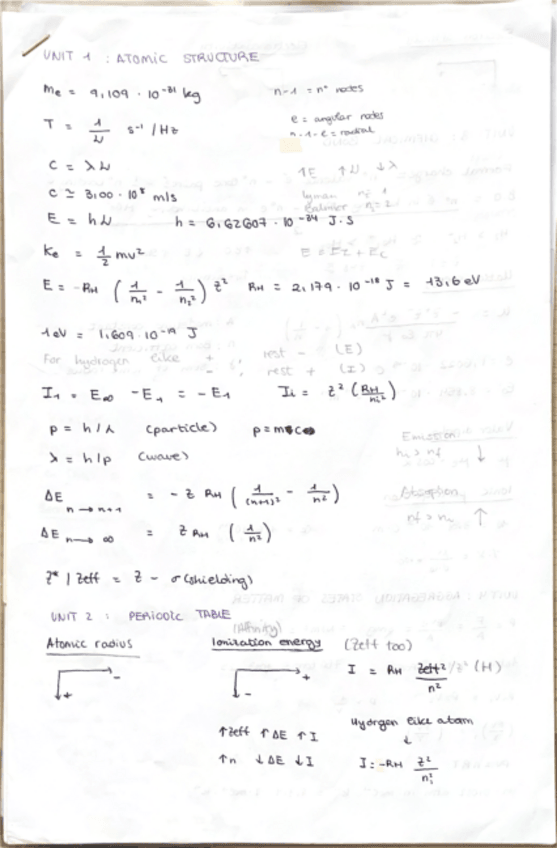 UNIT 1 : ATOMIC STRUCTURE
me = 9,109 · 10⁻³¹ kg
n-1 = nº nodes
T = 1/ν s⁻¹ / Hz
e = angular nodes
n-1-e = radial
c = λν
↑E ↑ν ↓λ
c ≃ 3,00 · 10⁸ m/s
Lyman nf 1
Balmer n=2
E = hν h = 6,62607 · 10⁻³⁴ J·S
Ke = 1/2 mv²
E = -RH (1/n² - 1/n²) z² RH = 2,179 · 10⁻¹⁸ J = 13,6 eV
1eV = 1,609 · 10⁻¹⁹ J
For hydrogen like + rest - (E)
rest + (I)
I₁ = E∞ - E₁ = - E₁ Ii = z² (RH/ni²)
p = h/λ (particle) p=m
λ = h/p (wave)
Emission
ni > nf ↓
ΔE n→n+1 = - z RH (1/(n+1)² - 1/n²)
Absorption
nf > ni ↑
ΔE n→∞ = z RH (1/n²)
z* / zeff = z - σ (shielding)
UNIT 2 : PERIODIC TABLE
Atomic radius
(Affinity)
Ionization energy (zeff too)
→ -
↓ +
→ +
↓ -
I = RH zeff²/z² (H)
n²
↑zeff ↑ΔE ↑I
↑n ↓ΔE ↓I
Hydrogen like atom
↓
I = -RH z²/ni²